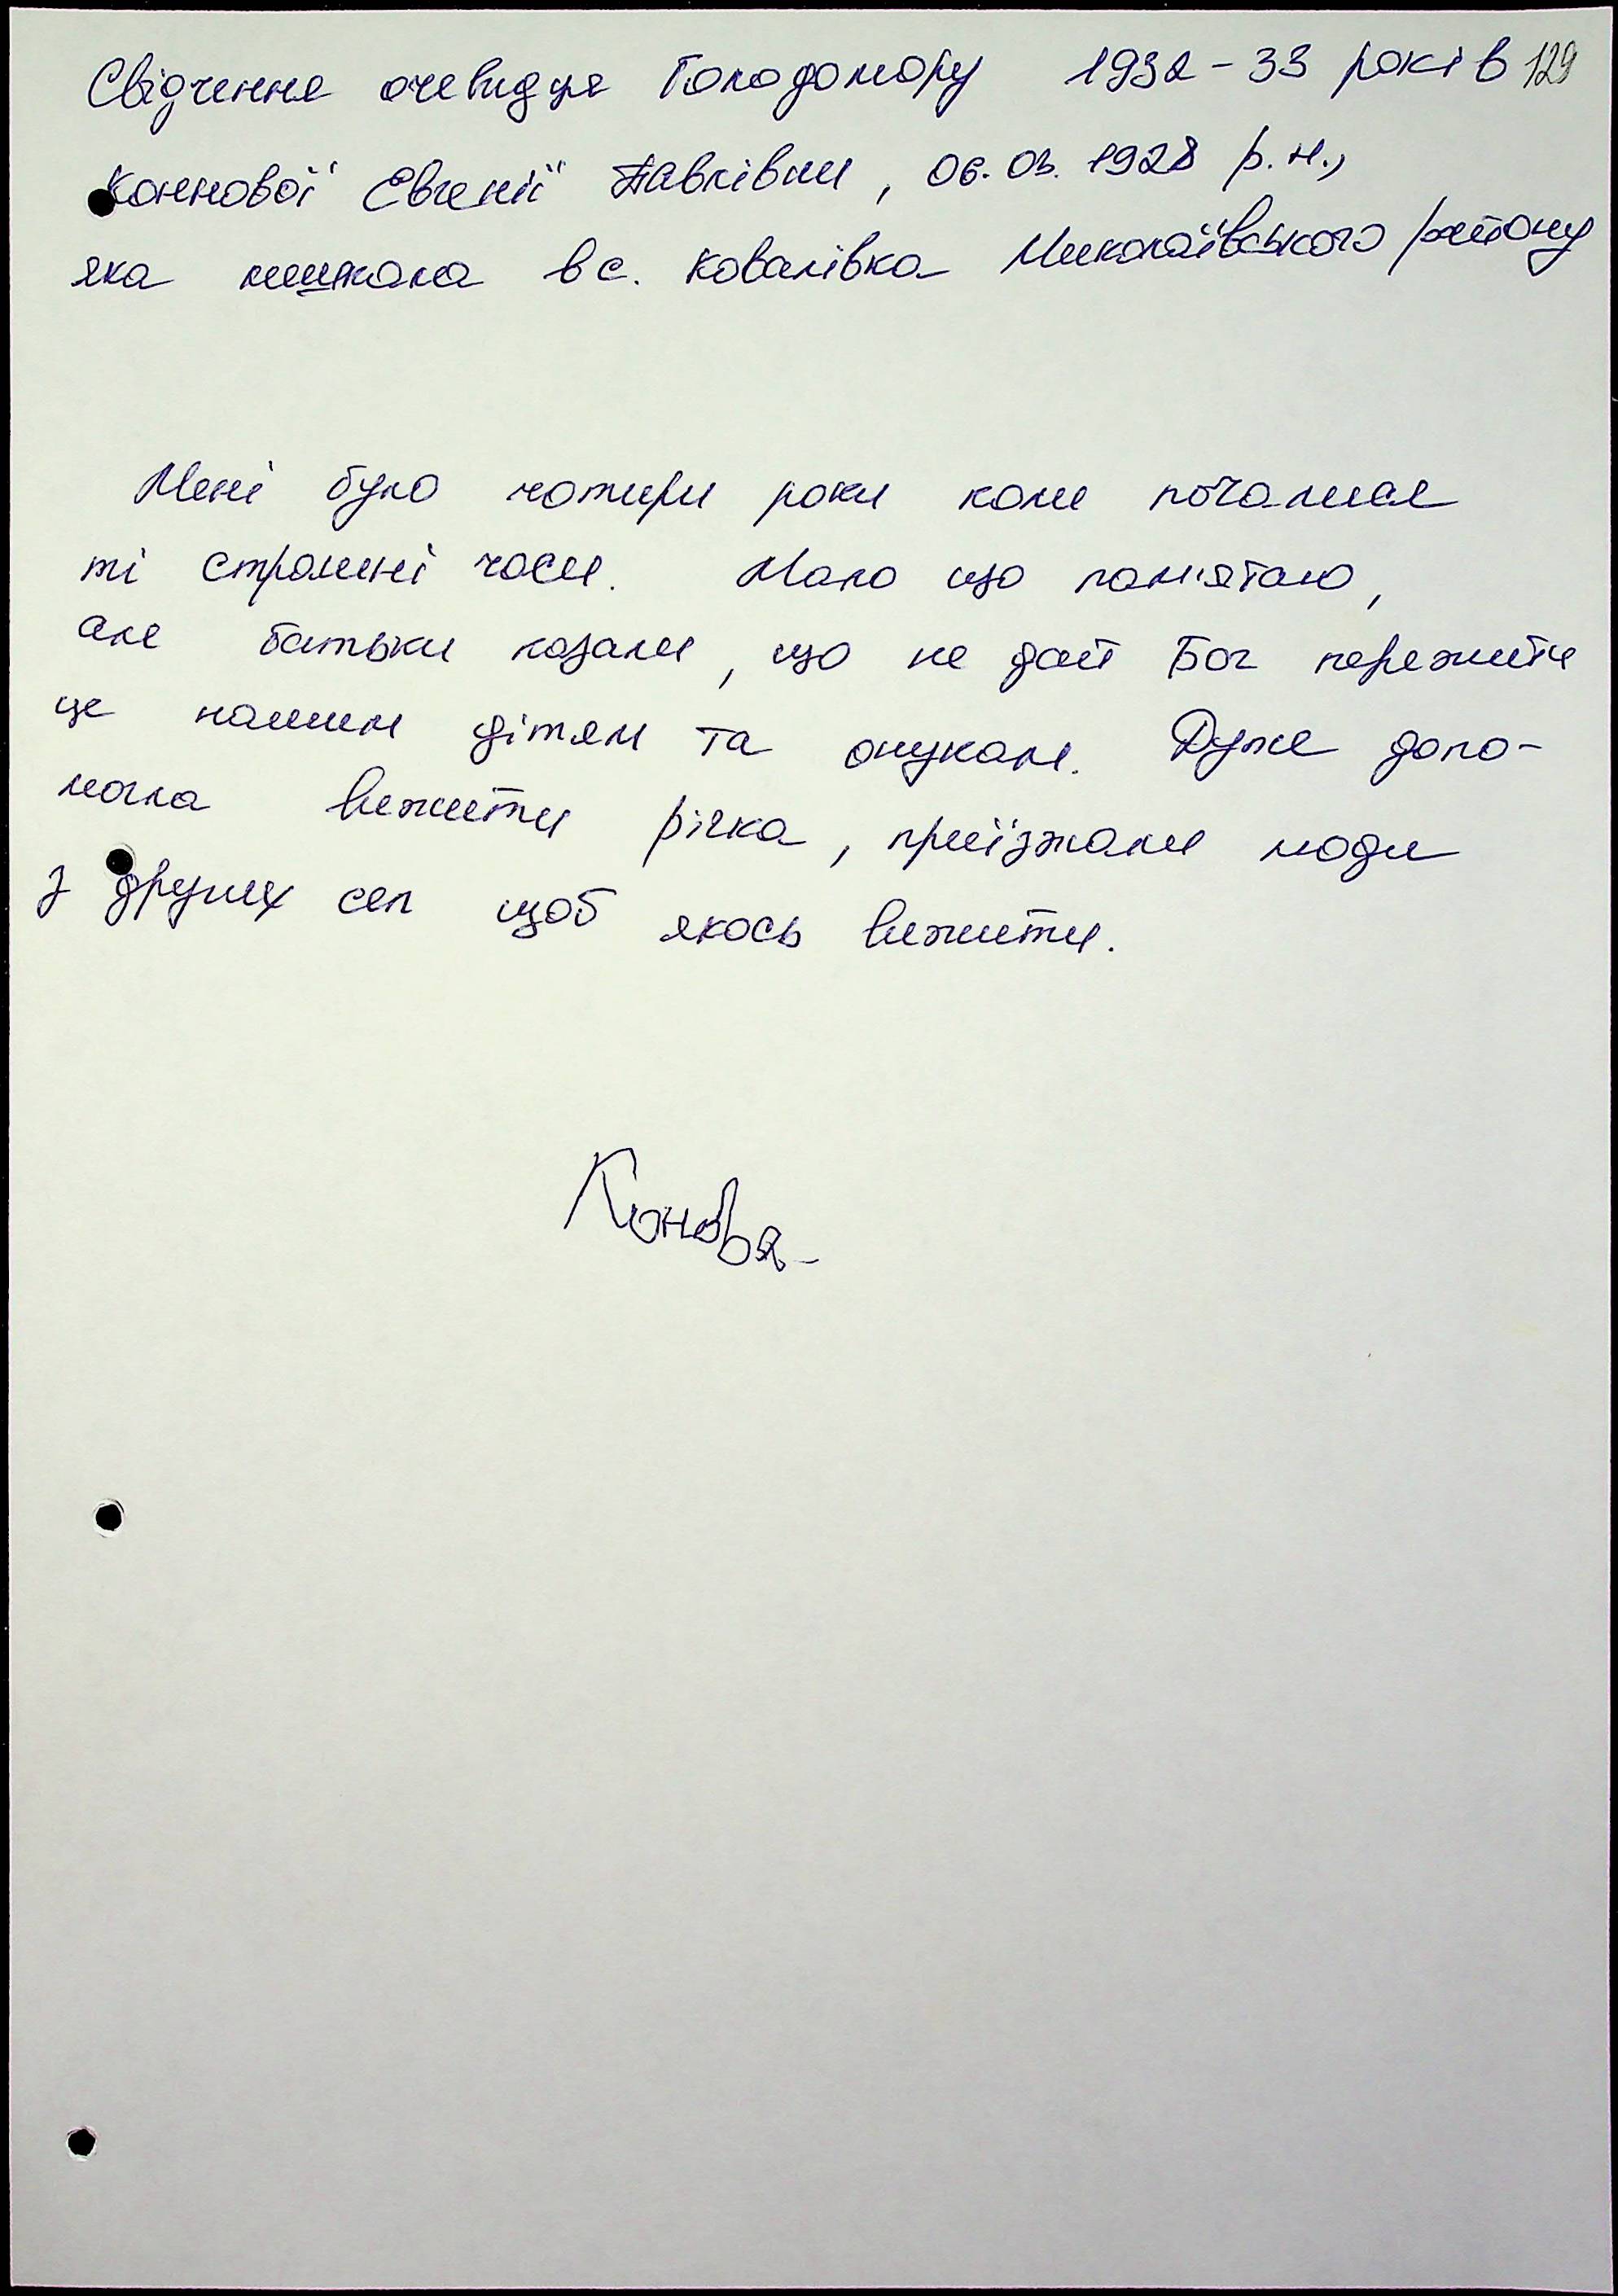 Свідчення очевидця Голодомору 1932-33 років 129
Коннової Євгенії Павлівни, 06.03.1928 р.н.,
яка мешкала в с. Ковалівка Миколаївського району
Мені було чотири роки коли почалися
ті страшні часи. Мало що пам'ятаю,
але батьки казали, що не дай Бог пережити
це нашим дітям та онукам. Дуже допо-
могла вижити річка, приїзжали люди
з других сел щоб якось вижити.
Конова